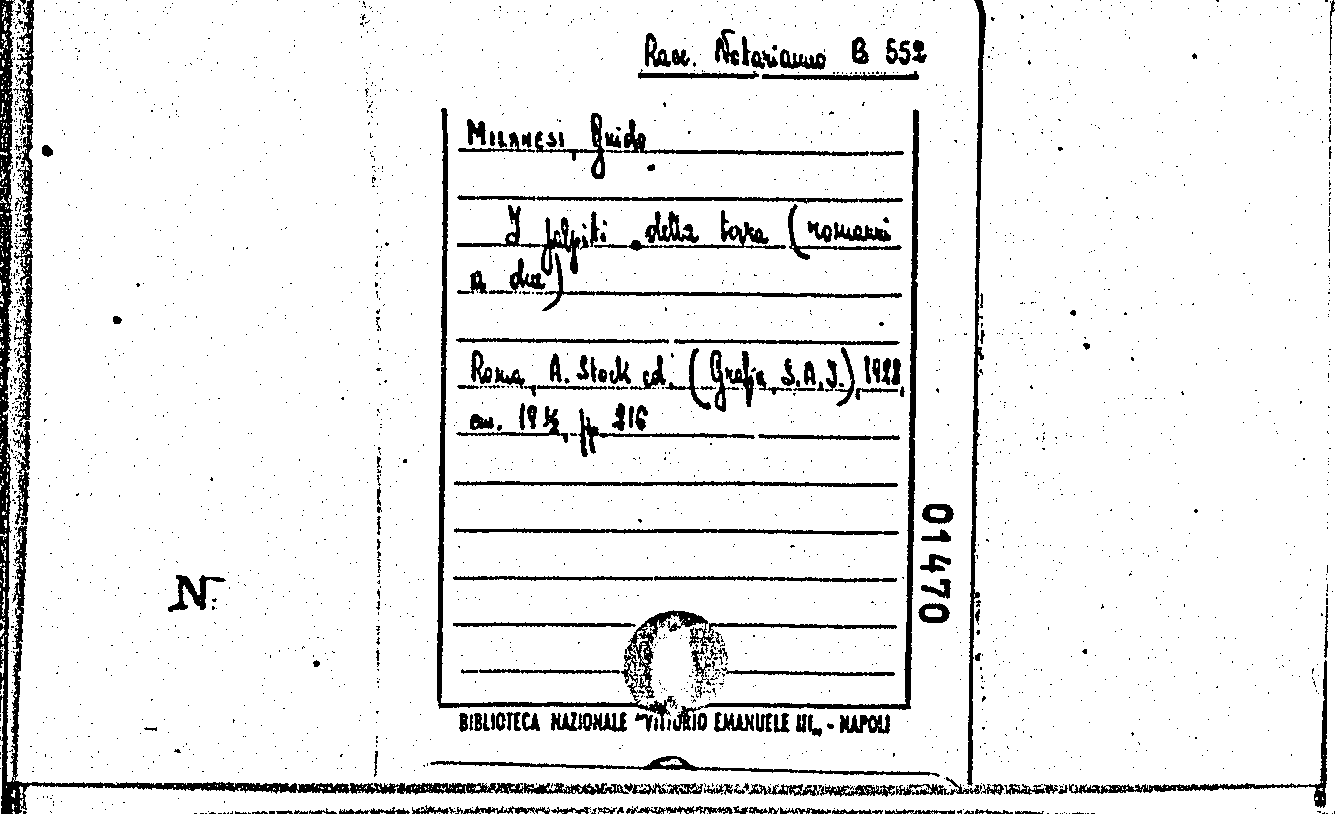 Racc. Notarianno B 552
MILANESI, Guido
I palpiti della terra (romanzi
a due)
Roma, A. Stock ed. (Grafia, S.A.I.), 1928,
cm. 19 ½, pp. 216
01470
N.
BIBLIOTECA NAZIONALE "VITTORIO EMANUELE III„ - NAPOLI